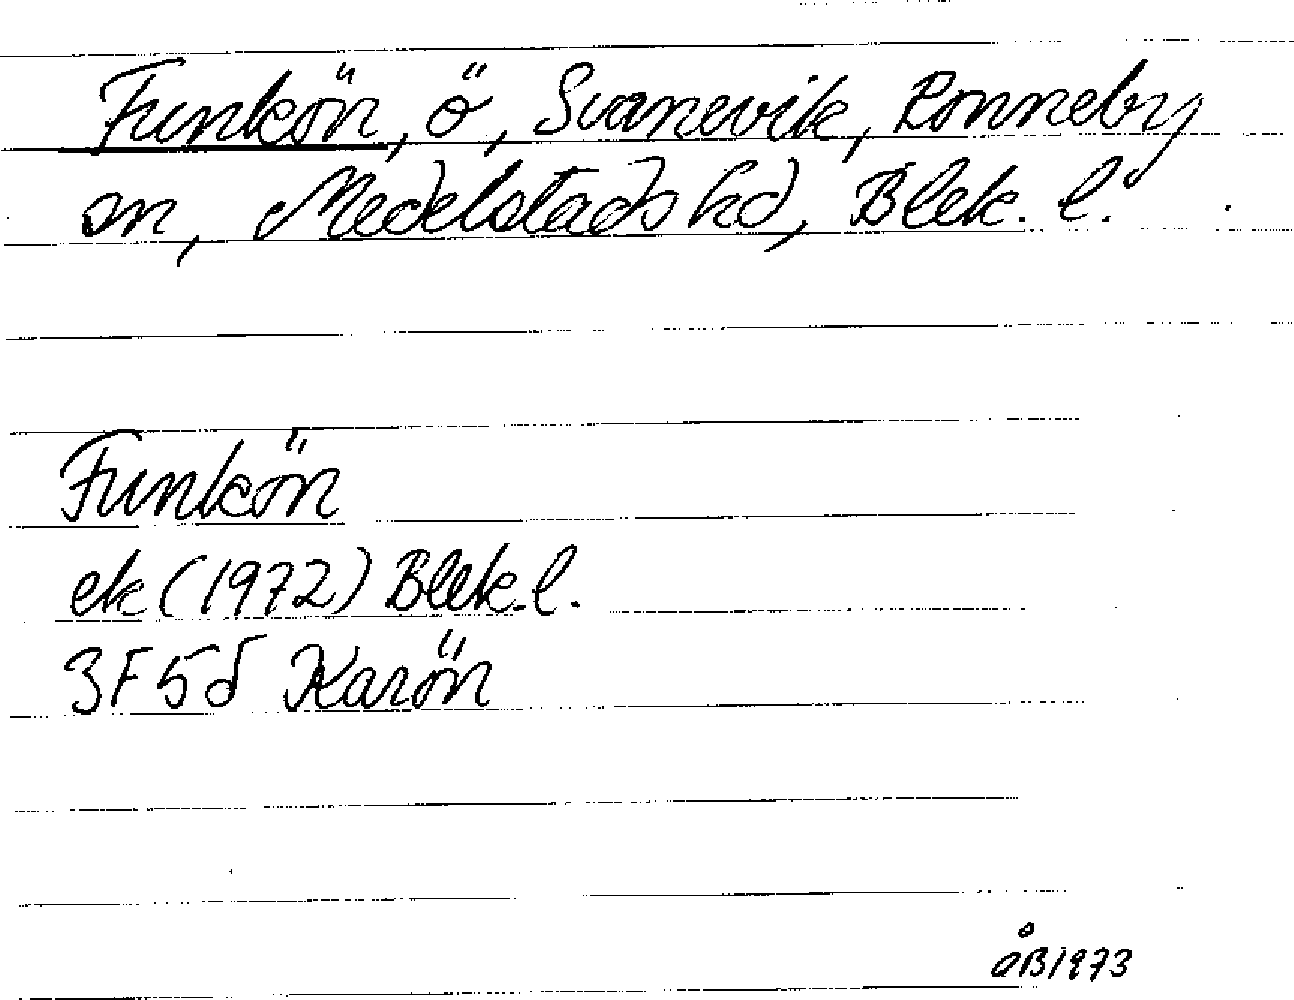 Funkön, ö, Svanevik, Ronneby
sn, Medelstads hd, Blek. l.
Funkön
ek (1972) Blek. l.
3F5d Karön
åB1973